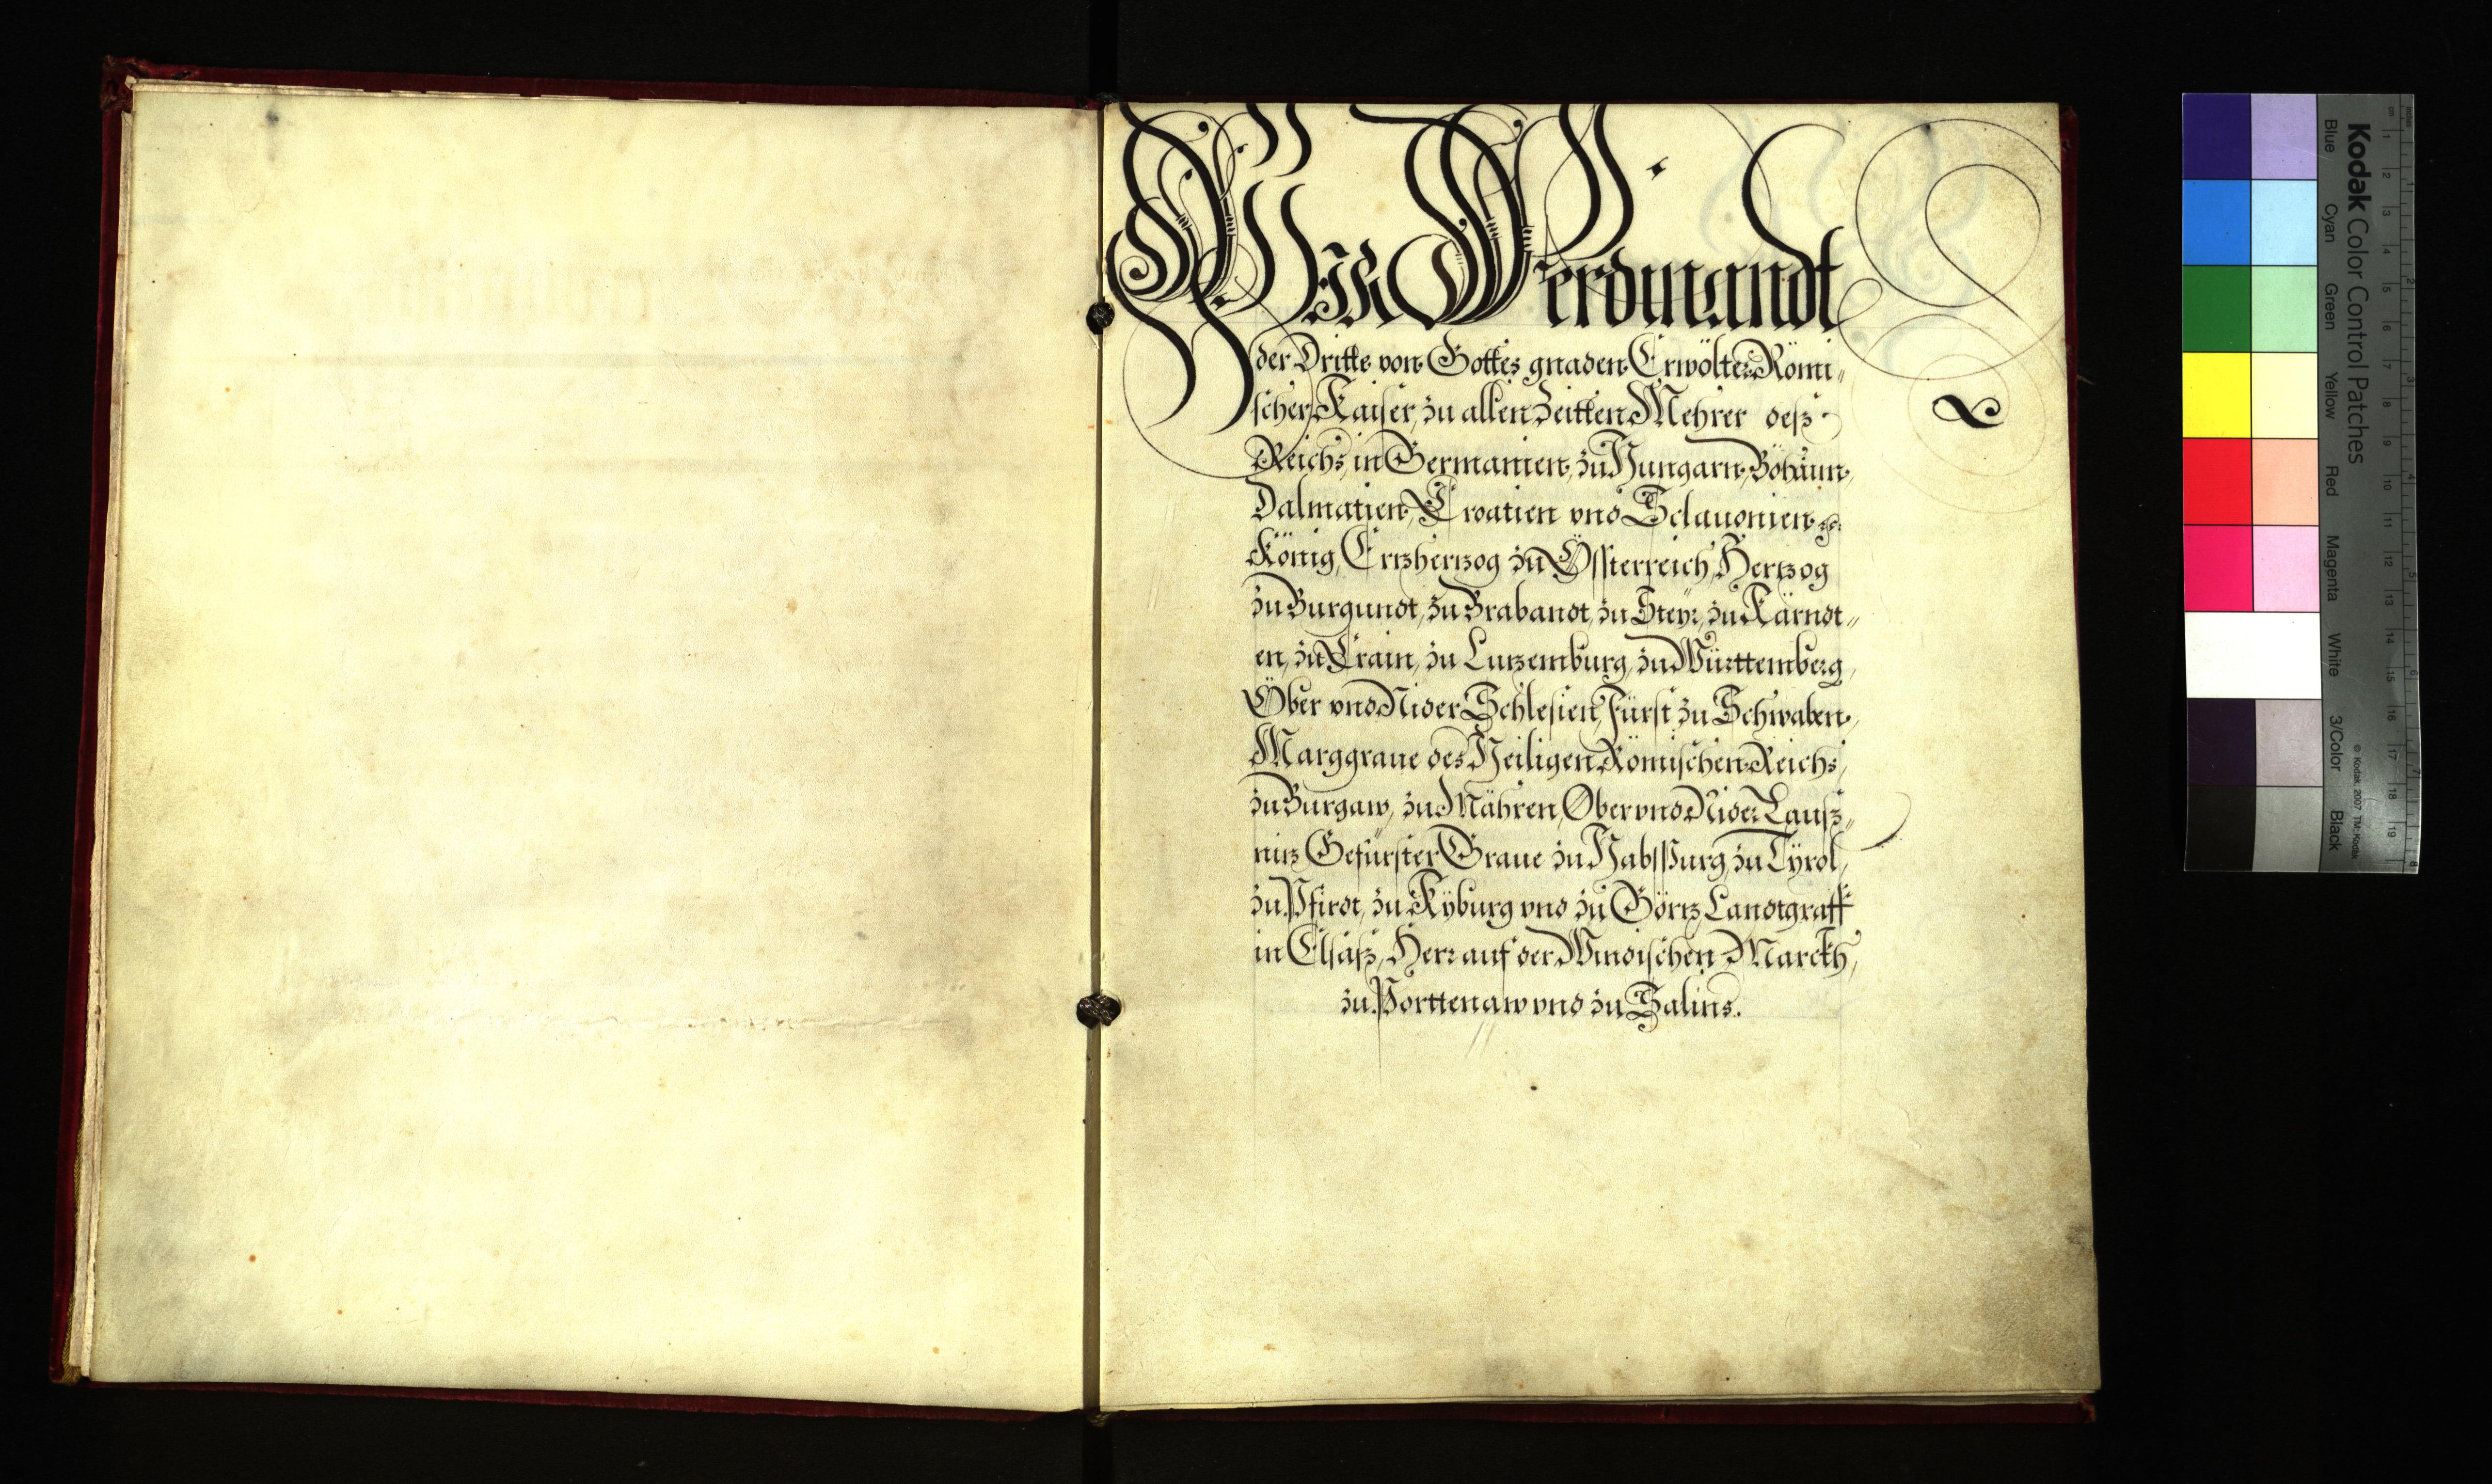 Wir Ferdinandt
der Dritte von Gottes gnaden Erwölter Römi„
scher Kaiser, zu allen Zeitten Mehrer deß
Reichs, in Germanien, zu Hungarn, Böhaim,
Dalmatien, Croatien vnd Sclauonien ꝛc.
König, Ertzhertzog zu Össterreich, Hertzog
zu Burgundt, zu Brabandt, zu Steyr, zu Kärndt„
en, zu Crain, zu Lutzemburg, zu Württemberg,
Ober vnd Nider Schlesien, Fürst zu Schwaben,
Marggraue des Heiligen Römischen Reichs,
zu Burgaw, zu Mähren, Ober vnd Nider Laußz„
nitz Gefürster Graue zu Habspurg, zu Tÿrol,
zu Pfirdt, zu Kÿburg vnd zu Görtz Landtgraff
in Elsäß, Herr auf der Windischen Marckh,
zu Porttenaw vnd zu Salins.
Kodak Color Control Patches
© Kodak, 2007 TM: Kodak
Blue Cyan Green Yellow Red Magenta White 3/Color Black
cm 1 2 3 4 5 6 7 8 9 10 11 12 13 14 15 16 17 18 19
inches 1 2 3 4 5 6 7 8